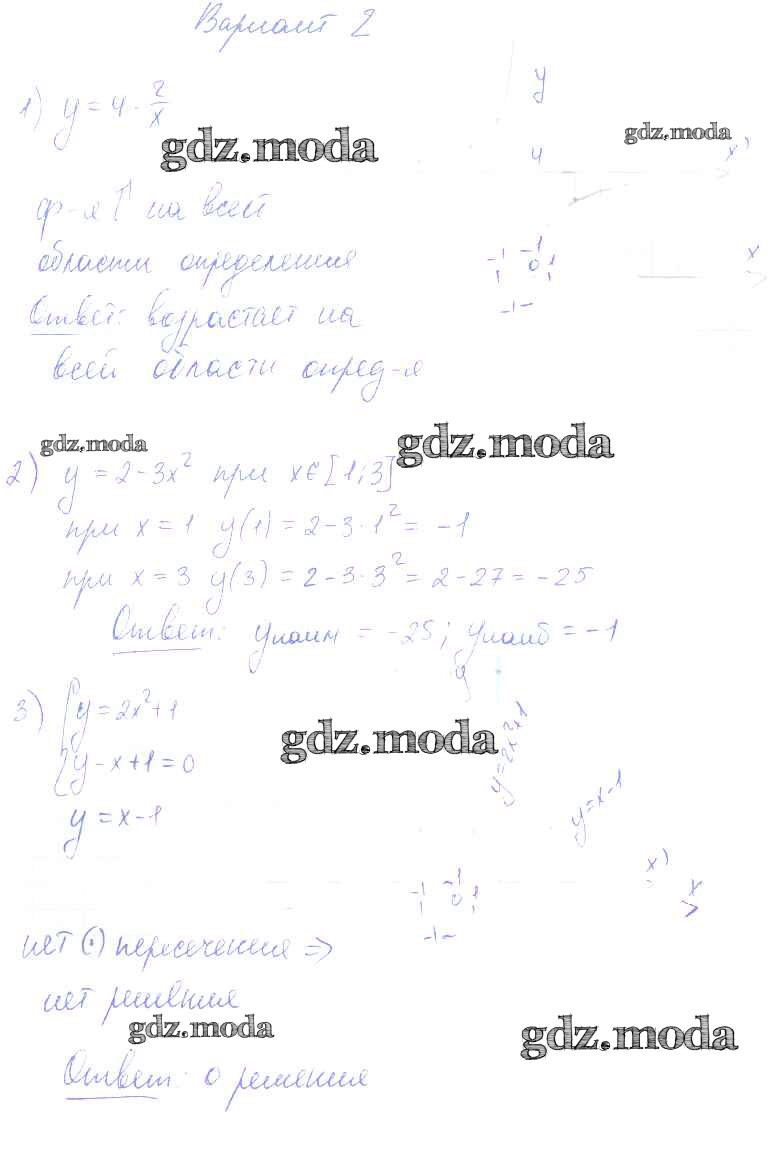 Вариант 2
1) y = 4 · 2/x
gdz.moda
gdz.moda
y
4
x'
ф-я ↑ на всей
области определения
Ответ: возрастает на
всей области опред-я
-1 0 1
-1
x
gdz.moda
gdz.moda
2) y = 2 - 3x² при x ∈ [1; 3]
при x = 1 y(1) = 2 - 3 · 1² = -1
при x = 3 y(3) = 2 - 3 · 3² = 2 - 27 = -25
Ответ: yнаим = -25; yнаиб = -1
3) { y = 2x² + 1
y - x + 1 = 0
y = x - 1
gdz.moda
y
y = 2x² + 1
y = x - 1
x'
x
-1 0 1
-1
нет (·) пересечения ⇒
нет решения
gdz.moda
gdz.moda
Ответ: 0 решения